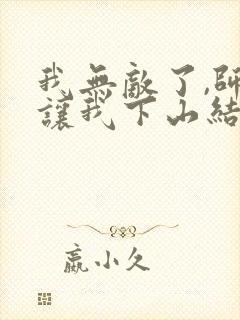 我無敵了,師
讓我下山結
嬴小久